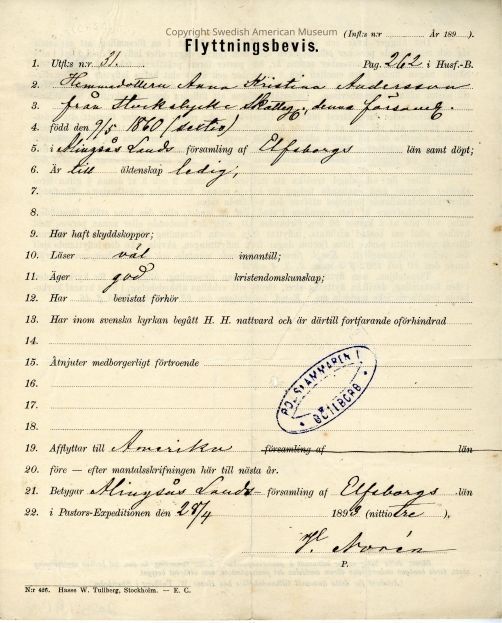 Copyright Swedish American Museum
Flyttningsbevis.
(Infl:s n:r År 189 ).
1. Utfl:s n:r 31. Pag. 262 i Husf.-B.
2. Hemmadottern Anna Kristina Andersson
3. från Stocksbycke Skatteg:, denna församl.
4. född den 9/5 1860 (sextio)
5. i Alingsås Lands församling af Elfsborgs län samt döpt;
6. Är till äktenskap ledig;
7.
8.
9. Har haft skyddskoppor;
10. Läser väl innantill;
11. Äger god kristendomskunskap;
12. Har bevistat förhör
13. Har inom svenska kyrkan begått H. H. nattvard och är därtill fortfarande oförhindrad
14.
15. Åtnjuter medborgerligt förtroende
16.
POLISKAMMAREN I GÖTEBORG
17.
18.
19. Afflyttar till Amerika församling af län
20. före — efter mantalsskrifningen här till nästa år.
21. Betygar Alingsås Lands församling af Elfsborgs län
22. i Pastors-Expeditionen den 28/4 1893 (nittiotre),
V. Norén
P.
N:r 426. Hasse W. Tullberg, Stockholm. — E. C.